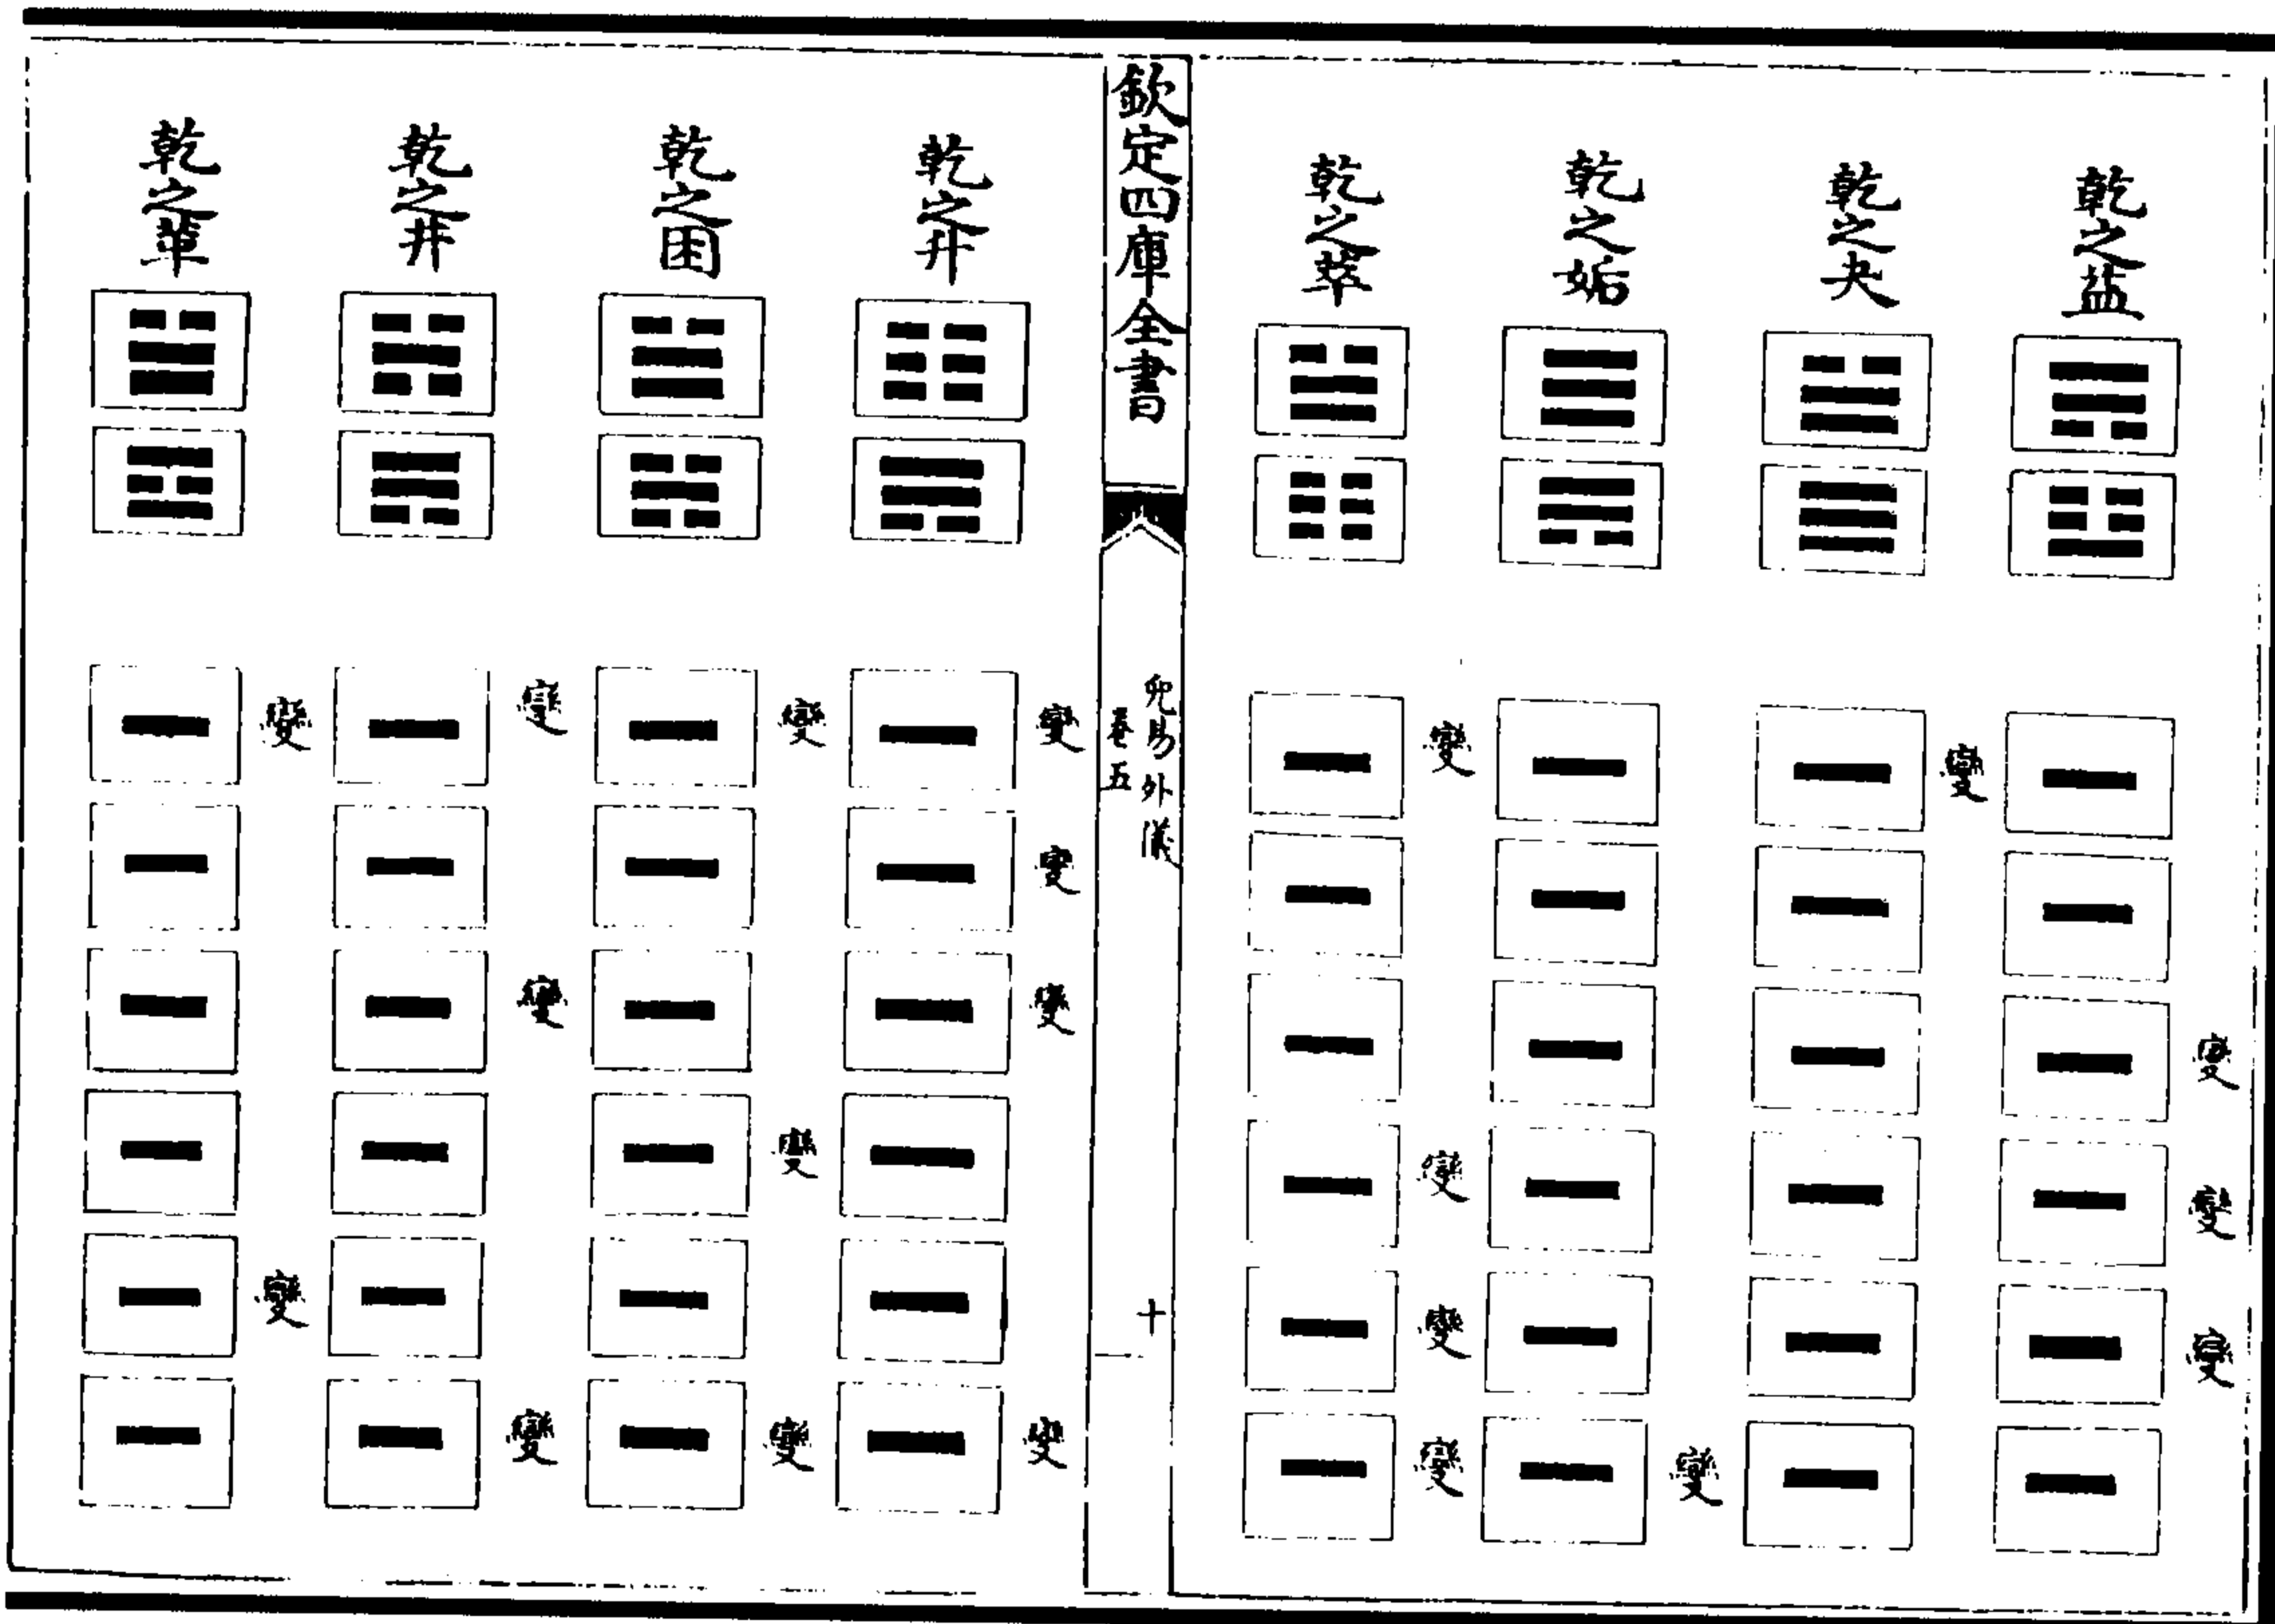 乾之益
變
變
變
乾之夬
變
乾之姤
變
乾之萃
變
變
變
變
欽定四庫全書
兒易外儀
卷五
十
乾之升
變
變
變
變
乾之困
變
變
變
乾之井
變
變
變
乾之革
變
變